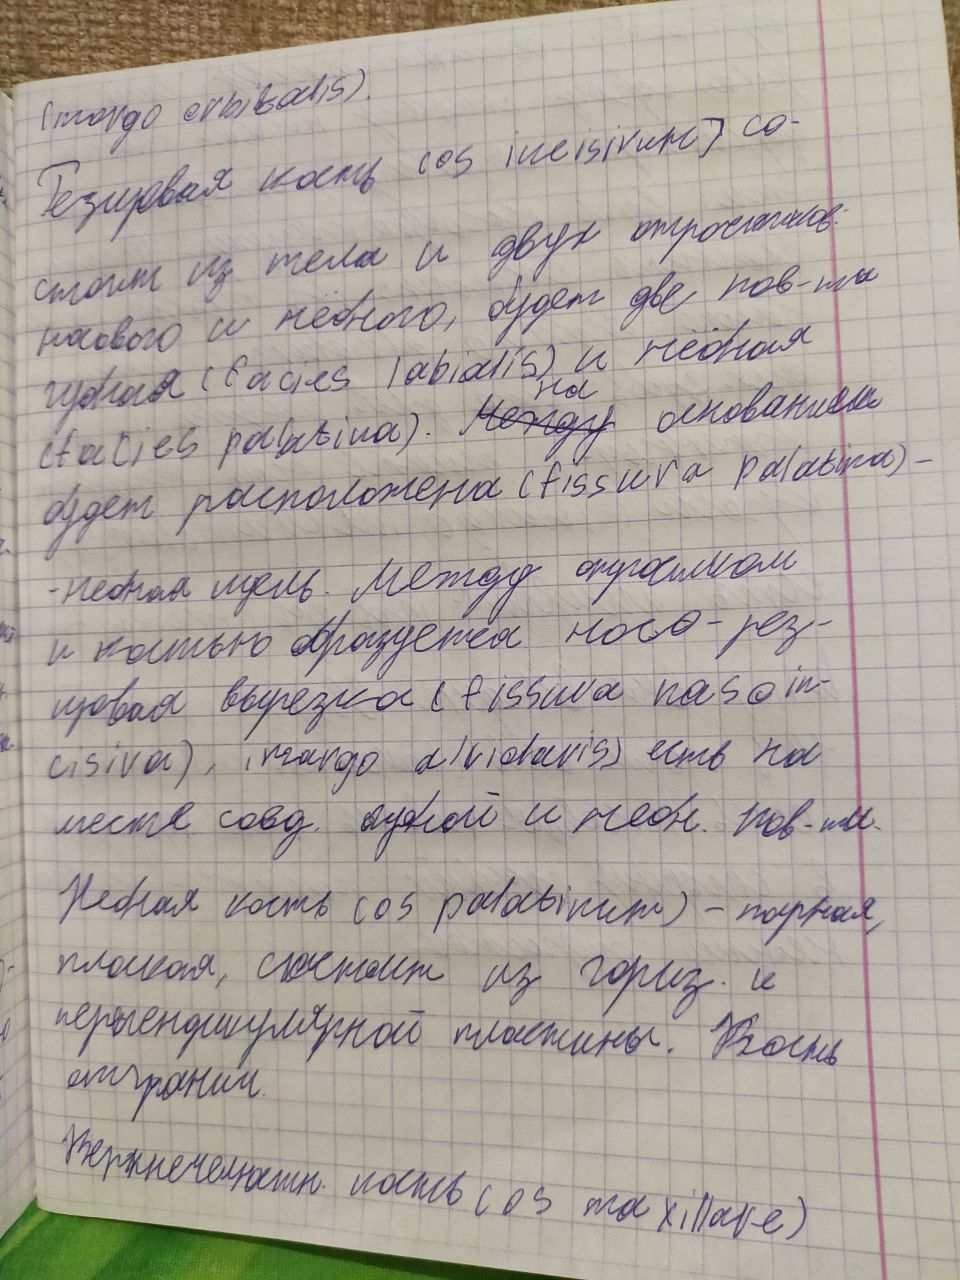 (margo orbitalis).
Резцовая кость (os incisivum) со-
стоит из тела и двух отростков:
носового и нёбного, будет две пов-ти
губная (facies labialis) и нёбная
(facies palatina). Между на основанием
будет расположена (fissura palatina) -
- небная щель. Между отростком
и костью образуется носо-рез-
цовая вырезка (fissura nasoin-
cisiva), (margo alviolaris) есть на
месте совд. губной и небн. пов-ти.
Небная кость (os palatinum) - парная,
плоская, состоит из гориз. и
перпендикулярной пластины. Кость
отгранич.
Верхнечелюстн. кость (os maxillare)